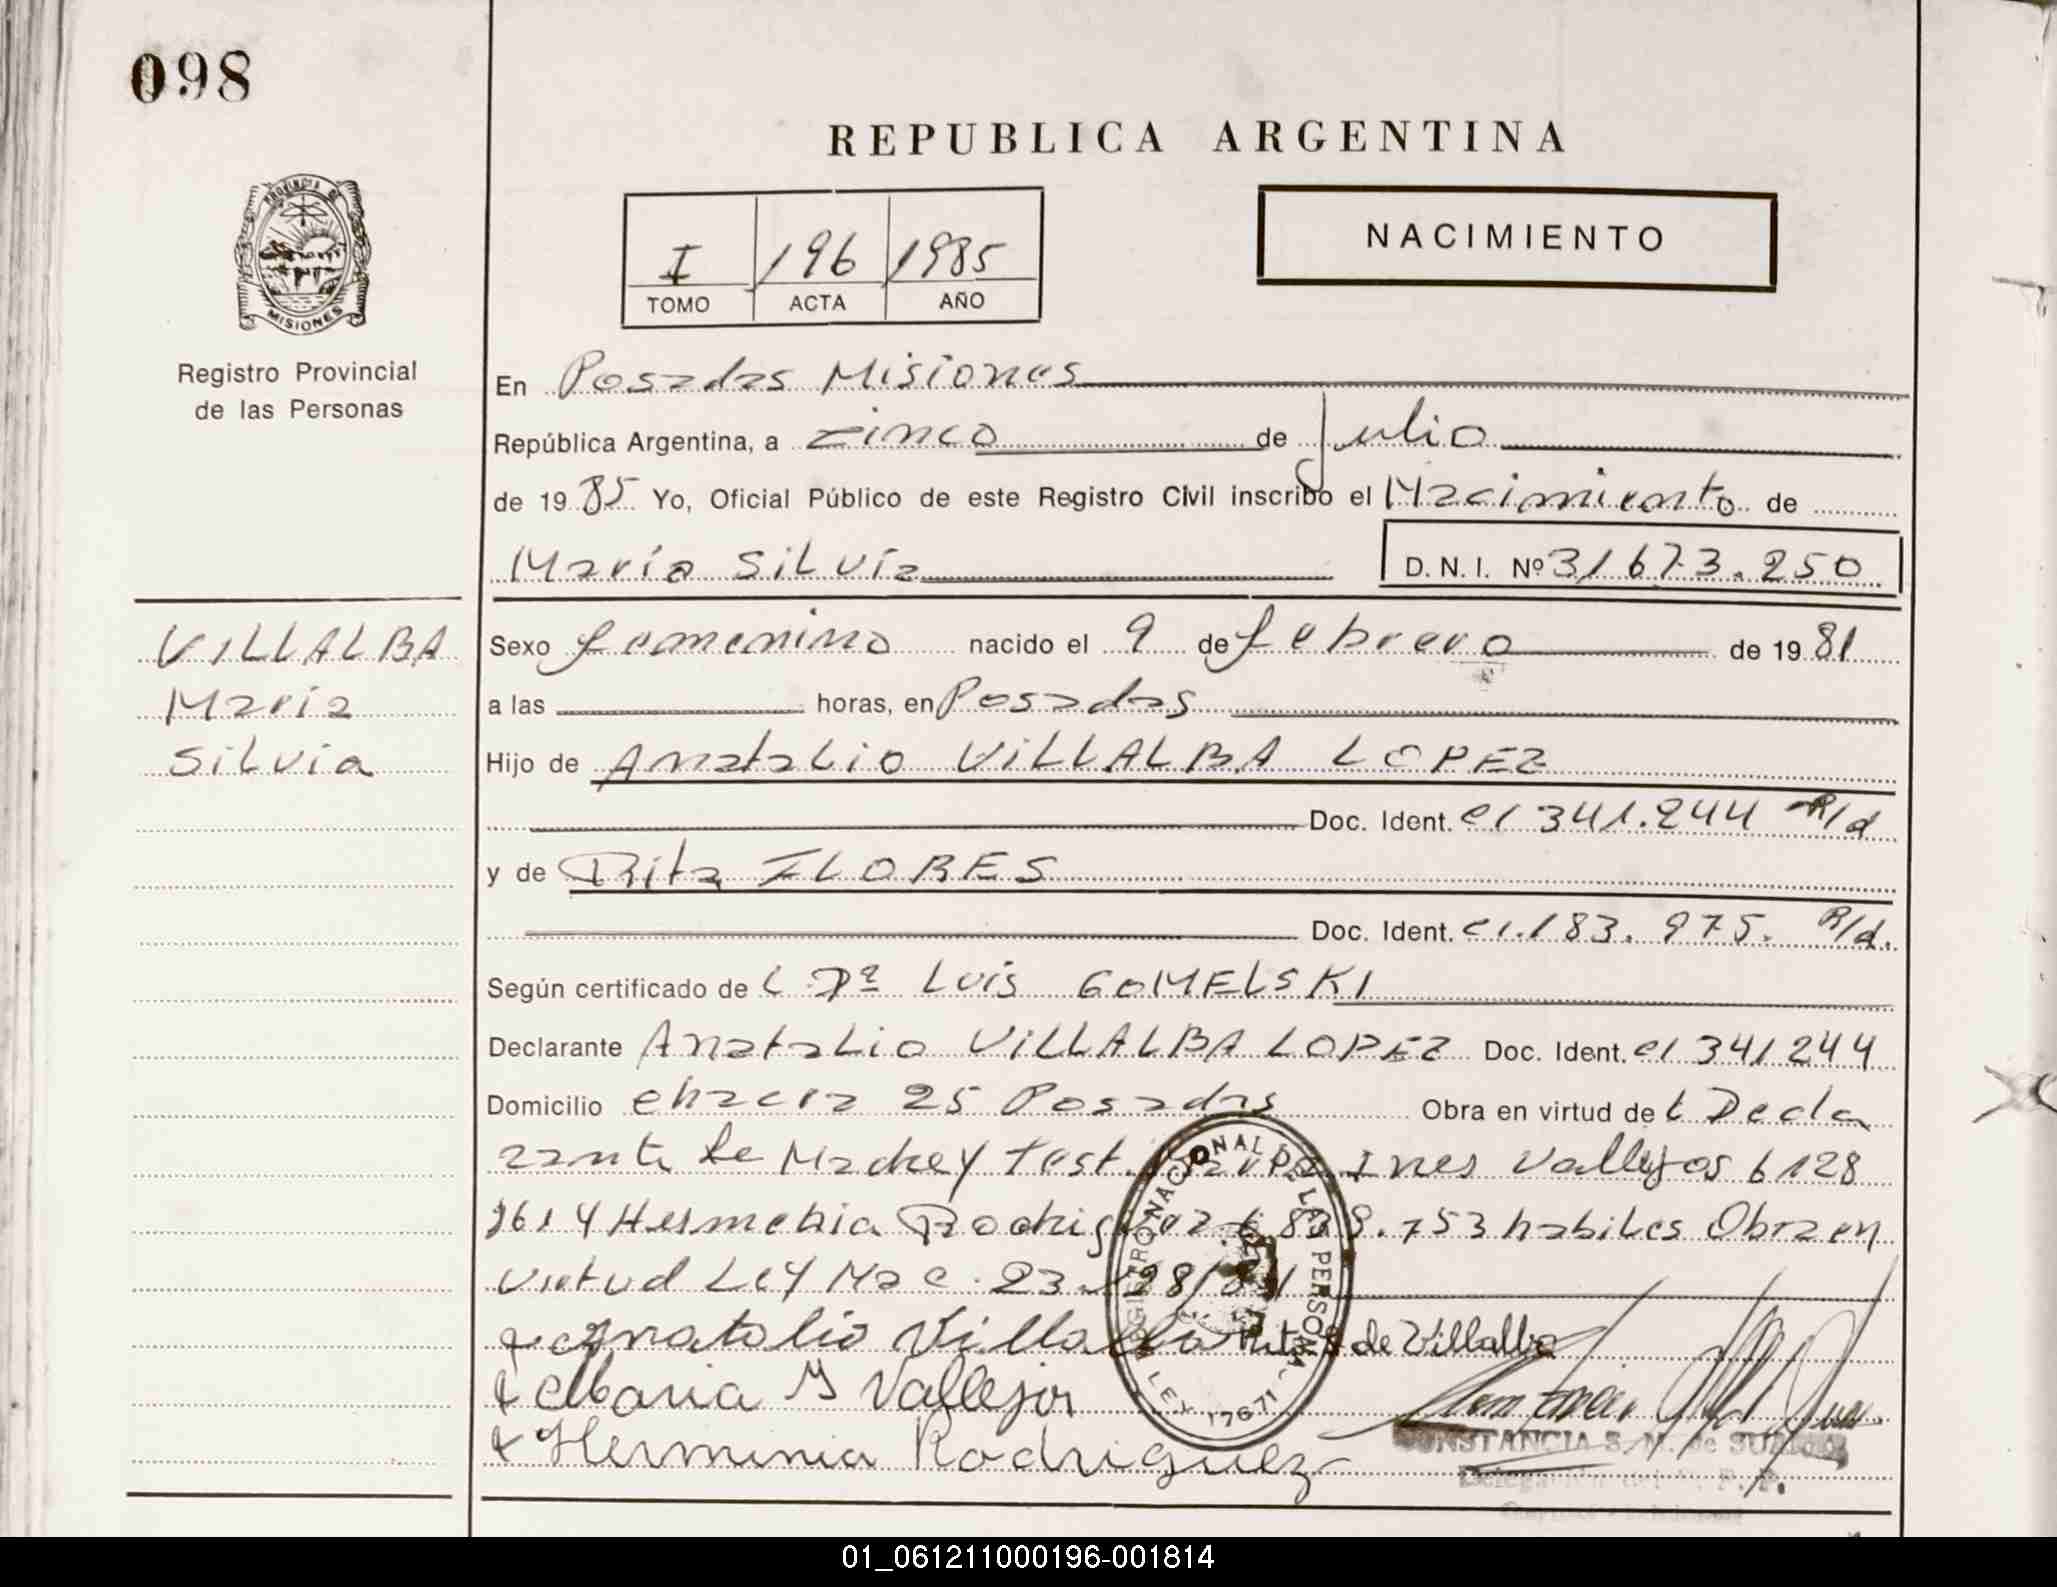 098
REPUBLICA ARGENTINA
PROVINCIA DE
MISIONES
I 196 1985
TOMO ACTA AÑO
NACIMIENTO
Registro Provincial
de las Personas
En Posadas Misiones
República Argentina, a cinco de Julio
de 1985 Yo, Oficial Público de este Registro Civil inscribo el Nacimiento de
María Silvia D.N.I. Nº 31673.250
VILLALBA
María
Silvia
Sexo femenino nacido el 9 de febrero de 1981
a las horas, en Posadas
Hijo de Anatalio VILLALBA LOPEZ
Doc. Ident. CI 341.244 R/d
y de Rita FLORES
Doc. Ident. CI.183.975. R/d.
Según certificado de Luis GOMELSKI
Declarante Anatalio VILLALBA LOPEZ Doc. Ident. CI 341244
Domicilio chacra 25 Posadas Obra en virtud de Decla
rante Test. Ines Vallejos 6128
614 habiles Obra en
virtud Ley Nac. 23.128/84
Anatalio Villalba Rita F de Villalba
Maria Y Vallejos
Herminia Rodriguez
REGISTRO NACIONAL DE LAS PERSONAS
LEY 17671
CONSTANCIA S. M. de
01_061211000196-001814